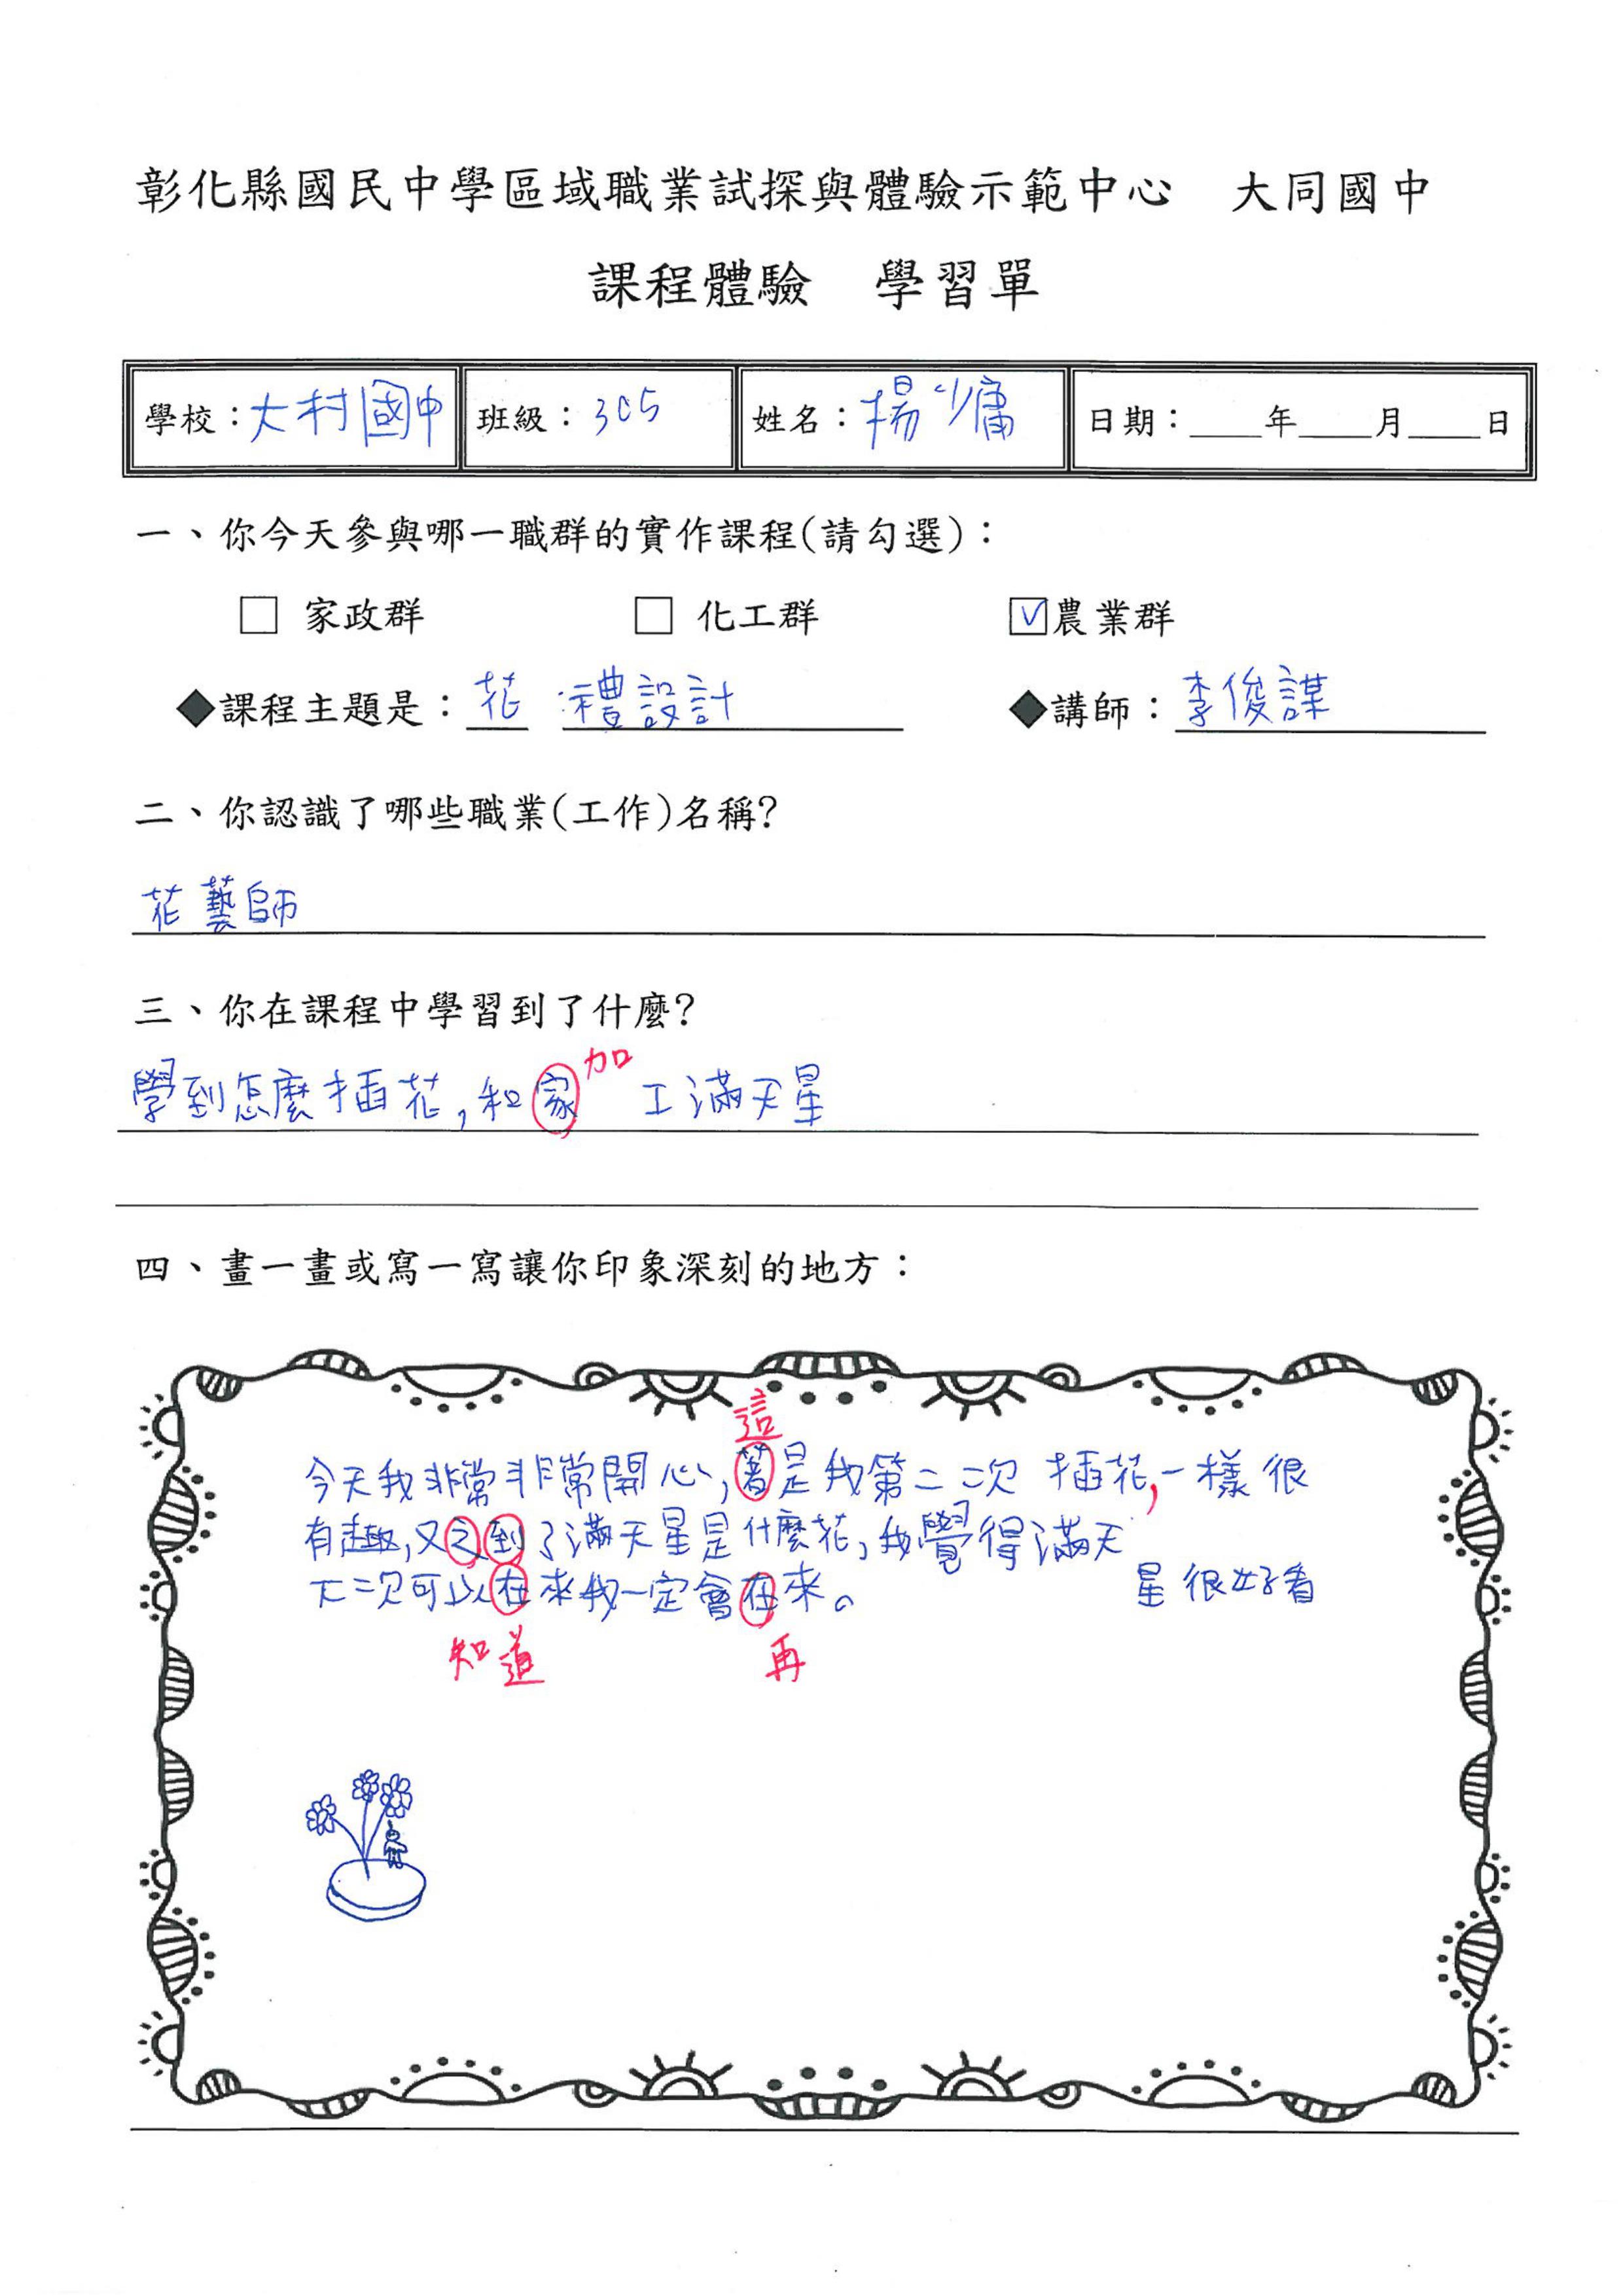 彰化縣國民中學區域職業試探與體驗示範中心 大同國中
課程體驗 學習單
學校：大村國中 班級：305 姓名：楊少庸 日期：____年____月____日
一、你今天參與哪一職群的實作課程(請勾選)：
□ 家政群 □ 化工群 ☑農業群
◆課程主題是：花 禮設計 ◆講師：李俊謀
二、你認識了哪些職業(工作)名稱?
花藝師
三、你在課程中學習到了什麼?
加
學到怎麼插花,和家 工滿天星
四、畫一畫或寫一寫讓你印象深刻的地方：
這
今天我非常非常開心,著是我第二次 插花,一樣很
有趣,又之到了滿天星是什麼花,我覺得滿天
星很好看
下二次可以在來我一定會在來。
知道 再